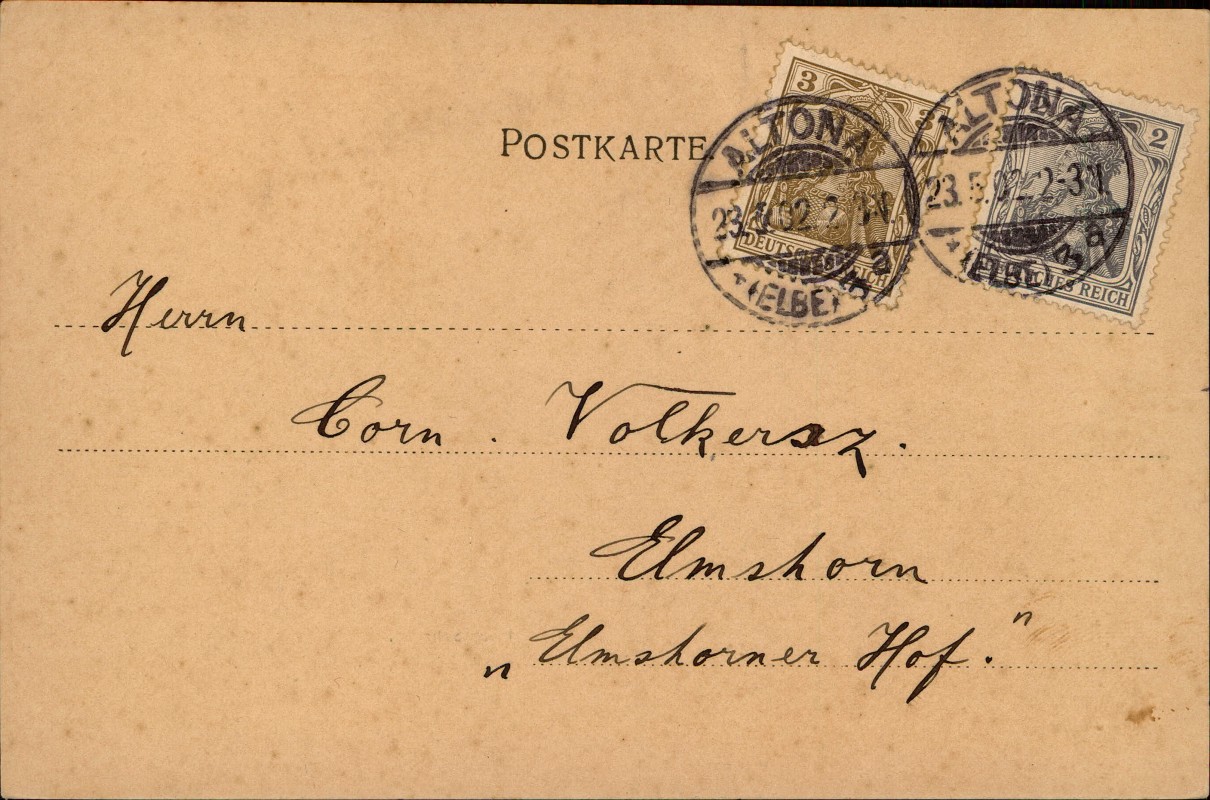 POSTKARTE
3 3
DEUTSCHES REICH
2
DEUTSCHES REICH
ALTONA
23.5.02.2-3N.
*(ELBE)3a
ALTONA
23.5.02.2-3N.
*(ELBE)3a
Herrn
Corn. Volkersz.
Elmshorn
„Elmshorner Hof."